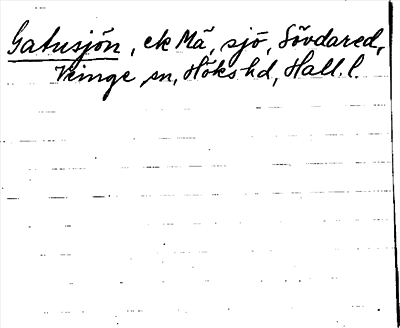 Gatusjön, ek Mã, sjö, Sövdared,
Veinge sn, Höks hd, Hall. l.